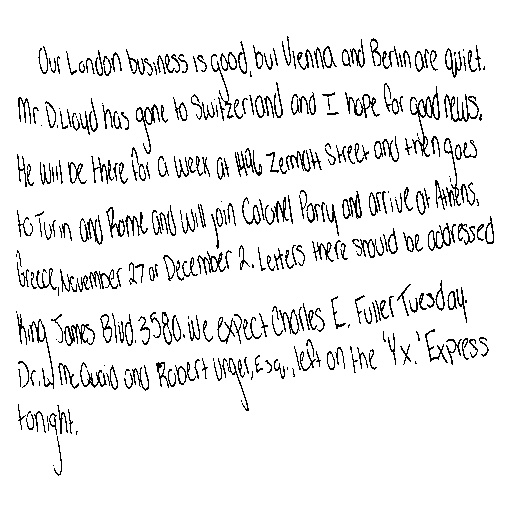 Our London business is good, but Vienna and Berlin are quiet.
Mr. D. Lloyd has gone to Switzerland and I hope for good news.
He will be there for a week at 1496 Zermott Street and then goes
to Turin and Rome and will join Colonel Parry and arrive at Athens,
Greece, November 27 or December 2. Letters there should be addressed
King James Blvd. 3580. We expect Charles E. Fuller Tuesday.
Dr. L. McQuaid and Robert Unger, Esq., left on the 'Y x.' Express
tonight.